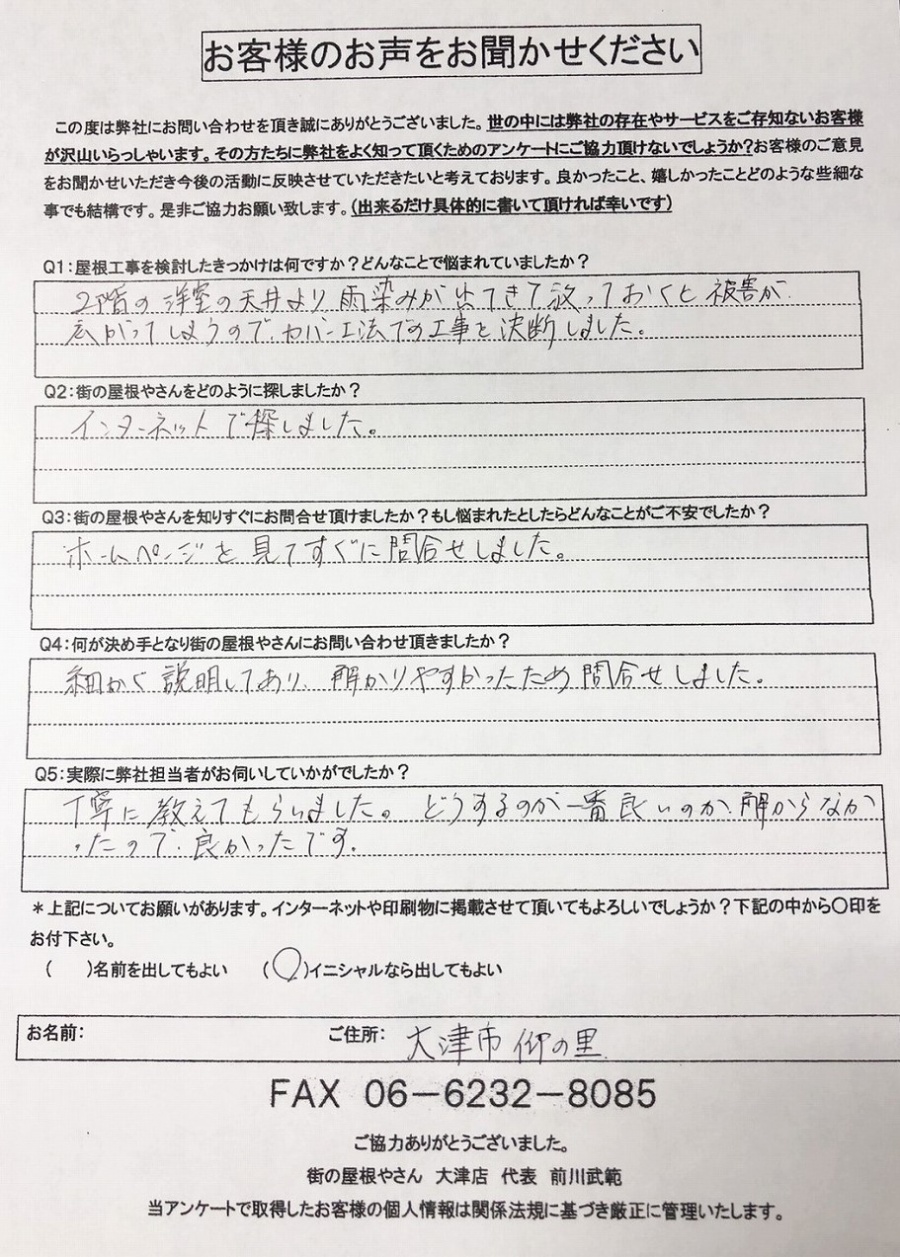 お客様のお声をお聞かせください
この度は弊社にお問い合わせを頂き誠にありがとうございました。世の中には弊社の存在やサービスをご存知ないお客様
が沢山いらっしゃいます。その方たちに弊社をよく知って頂くためのアンケートにご協力頂けないでしょうか?お客様のご意見
をお聞かせいただき今後の活動に反映させていただきたいと考えております。良かったこと、嬉しかったことどのような些細な
事でも結構です。是非ご協力お願い致します。(出来るだけ具体的に書いて頂ければ幸いです)
Q1:屋根工事を検討したきっかけは何ですか?どんなことで悩まれていましたか?
2階の洋室の天井より、雨染みが出てきて放っておくと被害が
広がってしまうので、カバー工法での工事を決断しました。
Q2:街の屋根やさんをどのように探しましたか?
インターネットで探しました。
Q3:街の屋根やさんを知りすぐにお問合せ頂けましたか?もし悩まれたとしたらどんなことがご不安でしたか?
ホームページを見てすぐに問合せしました。
Q4:何が決め手となり街の屋根やさんにお問い合わせ頂きましたか?
細かく説明してあり、解かりやすかったため問合せしました。
Q5:実際に弊社担当者がお伺いしていかがでしたか?
丁寧に教えてもらいました。どうするのが一番良いのか、解からなか
ったので、良かったです。
*上記についてお願いがあります。インターネットや印刷物に掲載させて頂いてもよろしいでしょうか?下記の中から〇印を
お付下さい。
( )名前を出してもよい (〇)イニシャルなら出してもよい
お名前: ご住所: 大津市仰の里
FAX 06-6232-8085
ご協力ありがとうございました。
街の屋根やさん 大津店 代表 前川武範
当アンケートで取得したお客様の個人情報は関係法規に基づき厳正に管理いたします。